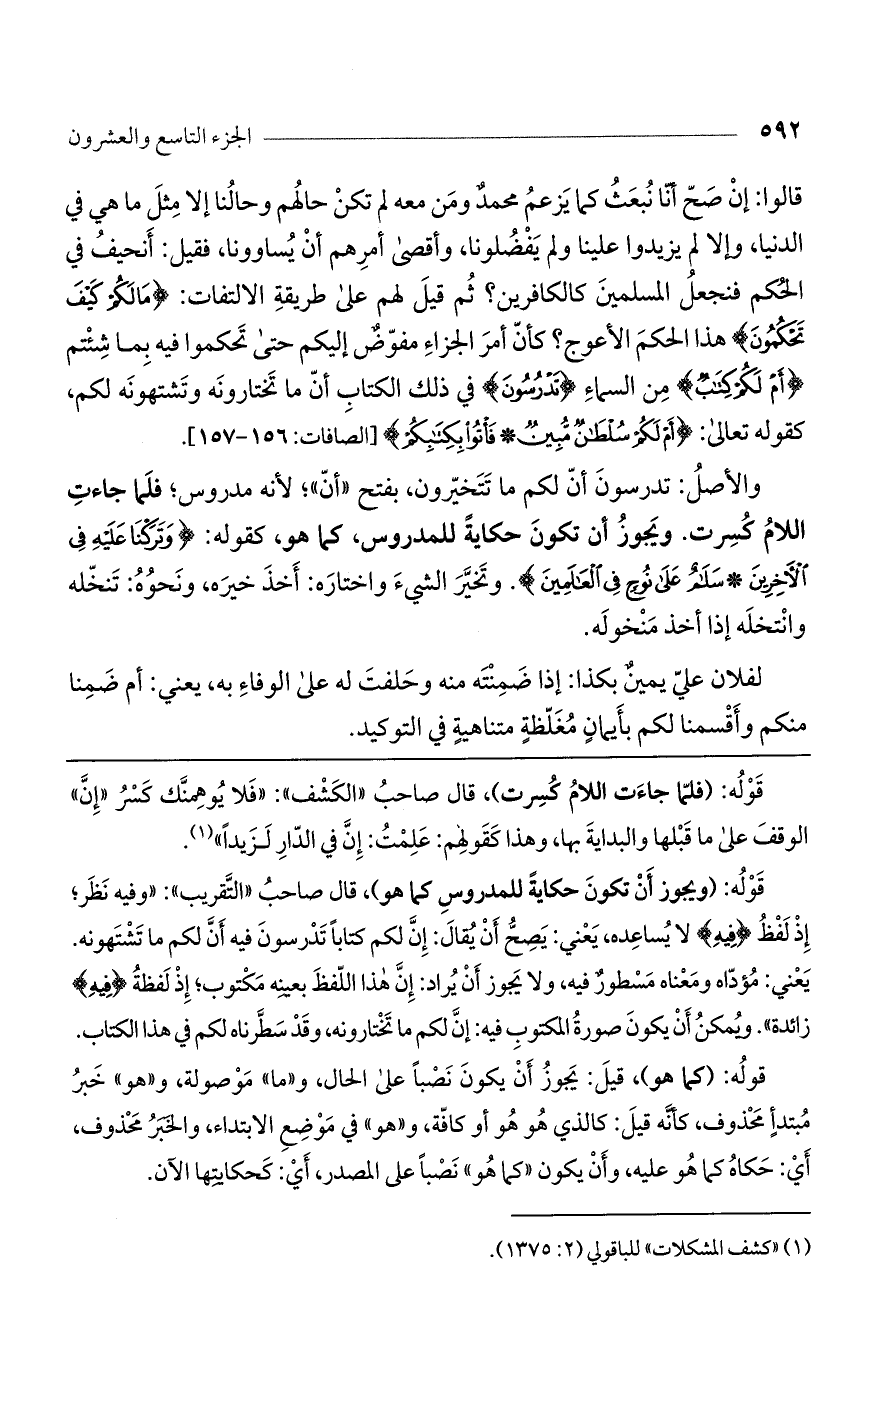 ٥٩٢ الجزء التاسع والعشرون
قالوا: إنْ صَحّ أنّا نُبعَثُ كما يَزعمُ محمدٌ ومَن معه لم تكنْ حالُهم وحالُنا إلا مِثلَ ما هي في
الدنيا، وإلا لم يزيدوا علينا ولم يَفْضُلونا، وأقصىٰ أمرِهم أنْ يُساوونا، فقيل: أَنحيفُ في
الحُكم فنجعلُ المسلمينَ كالكافرين؟ ثُم قيلَ لهم علىٰ طريقةِ الالتفات: ﴿مَالَكُمْ كَيْفَ
تَحْكُمُونَ﴾ هذا الحكمَ الأعوج؟ كأنّ أمرَ الجزاءِ مفوّضٌ إليكم حتىٰ تَحكموا فيه بِما شِئتم
﴿أَمْ لَكُمْ كِتَٰبٌ﴾ مِن السماءِ ﴿تَدْرُسُونَ﴾ في ذلك الكتابِ أنّ ما تَختارونَه وتَشتهونَه لكم،
كقوله تعالىٰ: ﴿أَمْ لَكُمْ سُلْطَٰنٌ مُّبِينٌ * فَأْتُوا۟ بِكِتَٰبِكُمْ﴾ [الصافات: ١٥٦-١٥٧].
والأصلُ: تدرسونَ أنّ لكم ما تَتَخيّرون، بفتح «أنّ»؛ لأنه مدروس؛ فلَما جاءتِ
اللامُ كُسِرت. ويَجوزُ أن تكونَ حكايةً للمدروس، كما هو، كقوله: ﴿وَتَرَكْنَا عَلَيْهِ فِى
ٱلْآخِرِينَ * سَلَٰمٌ عَلَىٰ نُوحٍ فِى ٱلْعَٰلَمِينَ﴾. وتَخيَّرَ الشيءَ واختارَه: أخذَ خيرَه، ونَحوُهُ: تَنخّله
وانْتخلَه إذا أخذ مَنْخولَه.
لفلان عليّ يمينٌ بكذا: إذا ضَمِنْتَه منه وحَلفتَ له علىٰ الوفاءِ به، يعني: أم ضَمِنا
منكم وأَقْسمنا لكم بأَيمانٍ مُغَلّظةٍ متناهيةٍ في التوكيد.
قَوْلُه: (فلمّا جاءَت اللامُ كُسِرت)، قال صاحبُ «الكَشْف»: «فَلا يُوهِمنَّك كَسْرُ «إِنَّ»
الوقفَ علىٰ ما قَبْلها والبدايةَ بها، وهذا كَقَولِهم: عَلِمْتُ: إِنَّ في الدّارِ لَـزَيداً»(١).
قَوْلُه: (ويجوز أَنْ تكونَ حكايةً للمدروسِ كما هو)، قال صاحبُ «التَّقريب»: «وفيه نَظَر؛
إذْ لَفْظُ ﴿فِيهِ﴾ لا يُساعِده، يَعْني: يَصِحُّ أَنْ يُقالَ: إنَّ لكم كتاباً تَدْرسونَ فيه أنَّ لكم ما تَشْتَهونه.
يَعْني: مُؤدّاه ومَعْناه مَسْطورٌ فيه، ولا يَجوز أَنْ يُراد: إنَّ هٰذا اللّفظَ بعينِه مَكْتوب؛ إذْ لَفظةُ ﴿فِيهِ﴾
زائدة». ويُمكنُ أَنْ يكونَ صورةُ المكتوبِ فيه: إنَّ لكم ما تَخْتارونه، وقَدْ سَطَّرناه لكم في هذا الكتاب.
قولُه: (كما هو)، قيلَ: يَجوزُ أَنْ يكونَ نَصْباً علىٰ الحال، و«ما» مَوْصولة، و«هو» خَبرُ
مُبتدأٍ مَحْذوف، كأنَّه قيلَ: كالذي هُو هُو أو كافّة، و«هو» في مَوْضِعِ الابتداء، والخَبَرُ مَحْذوف،
أَيْ: حَكاهُ كما هُو عليه، وأَنْ يكون «كما هُو» نَصْباً على المصدر، أَيْ: كَحكايتِها الآن.
(١) «كشف المشكلات» للباقولي (٢: ١٣٧٥).